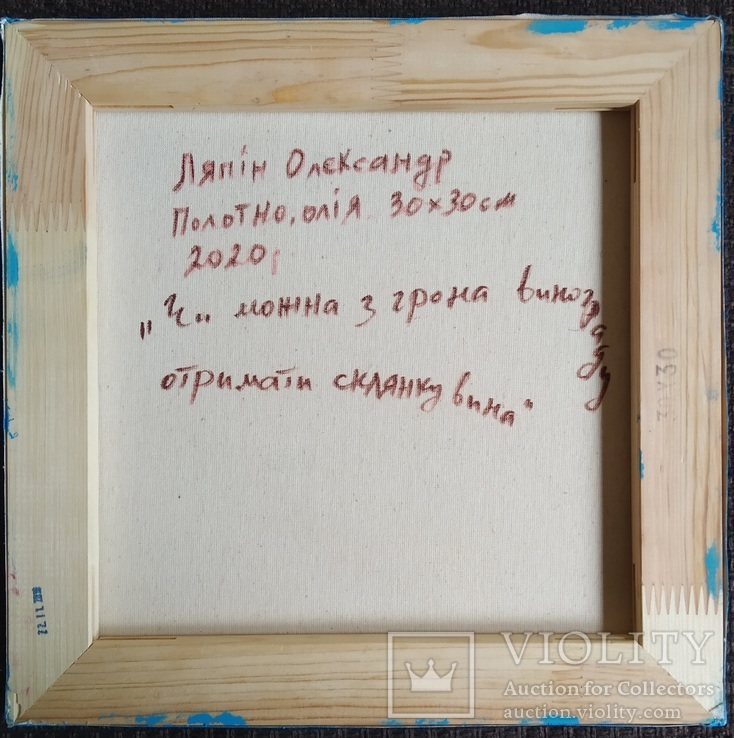 Ляпін Олександр
Полотно, олія 30х30см
2020г
„Чи можна з грона винограду
отримати склянку вина"
30X30
VIOLITY
Auction for Collectors
auction.violity.com